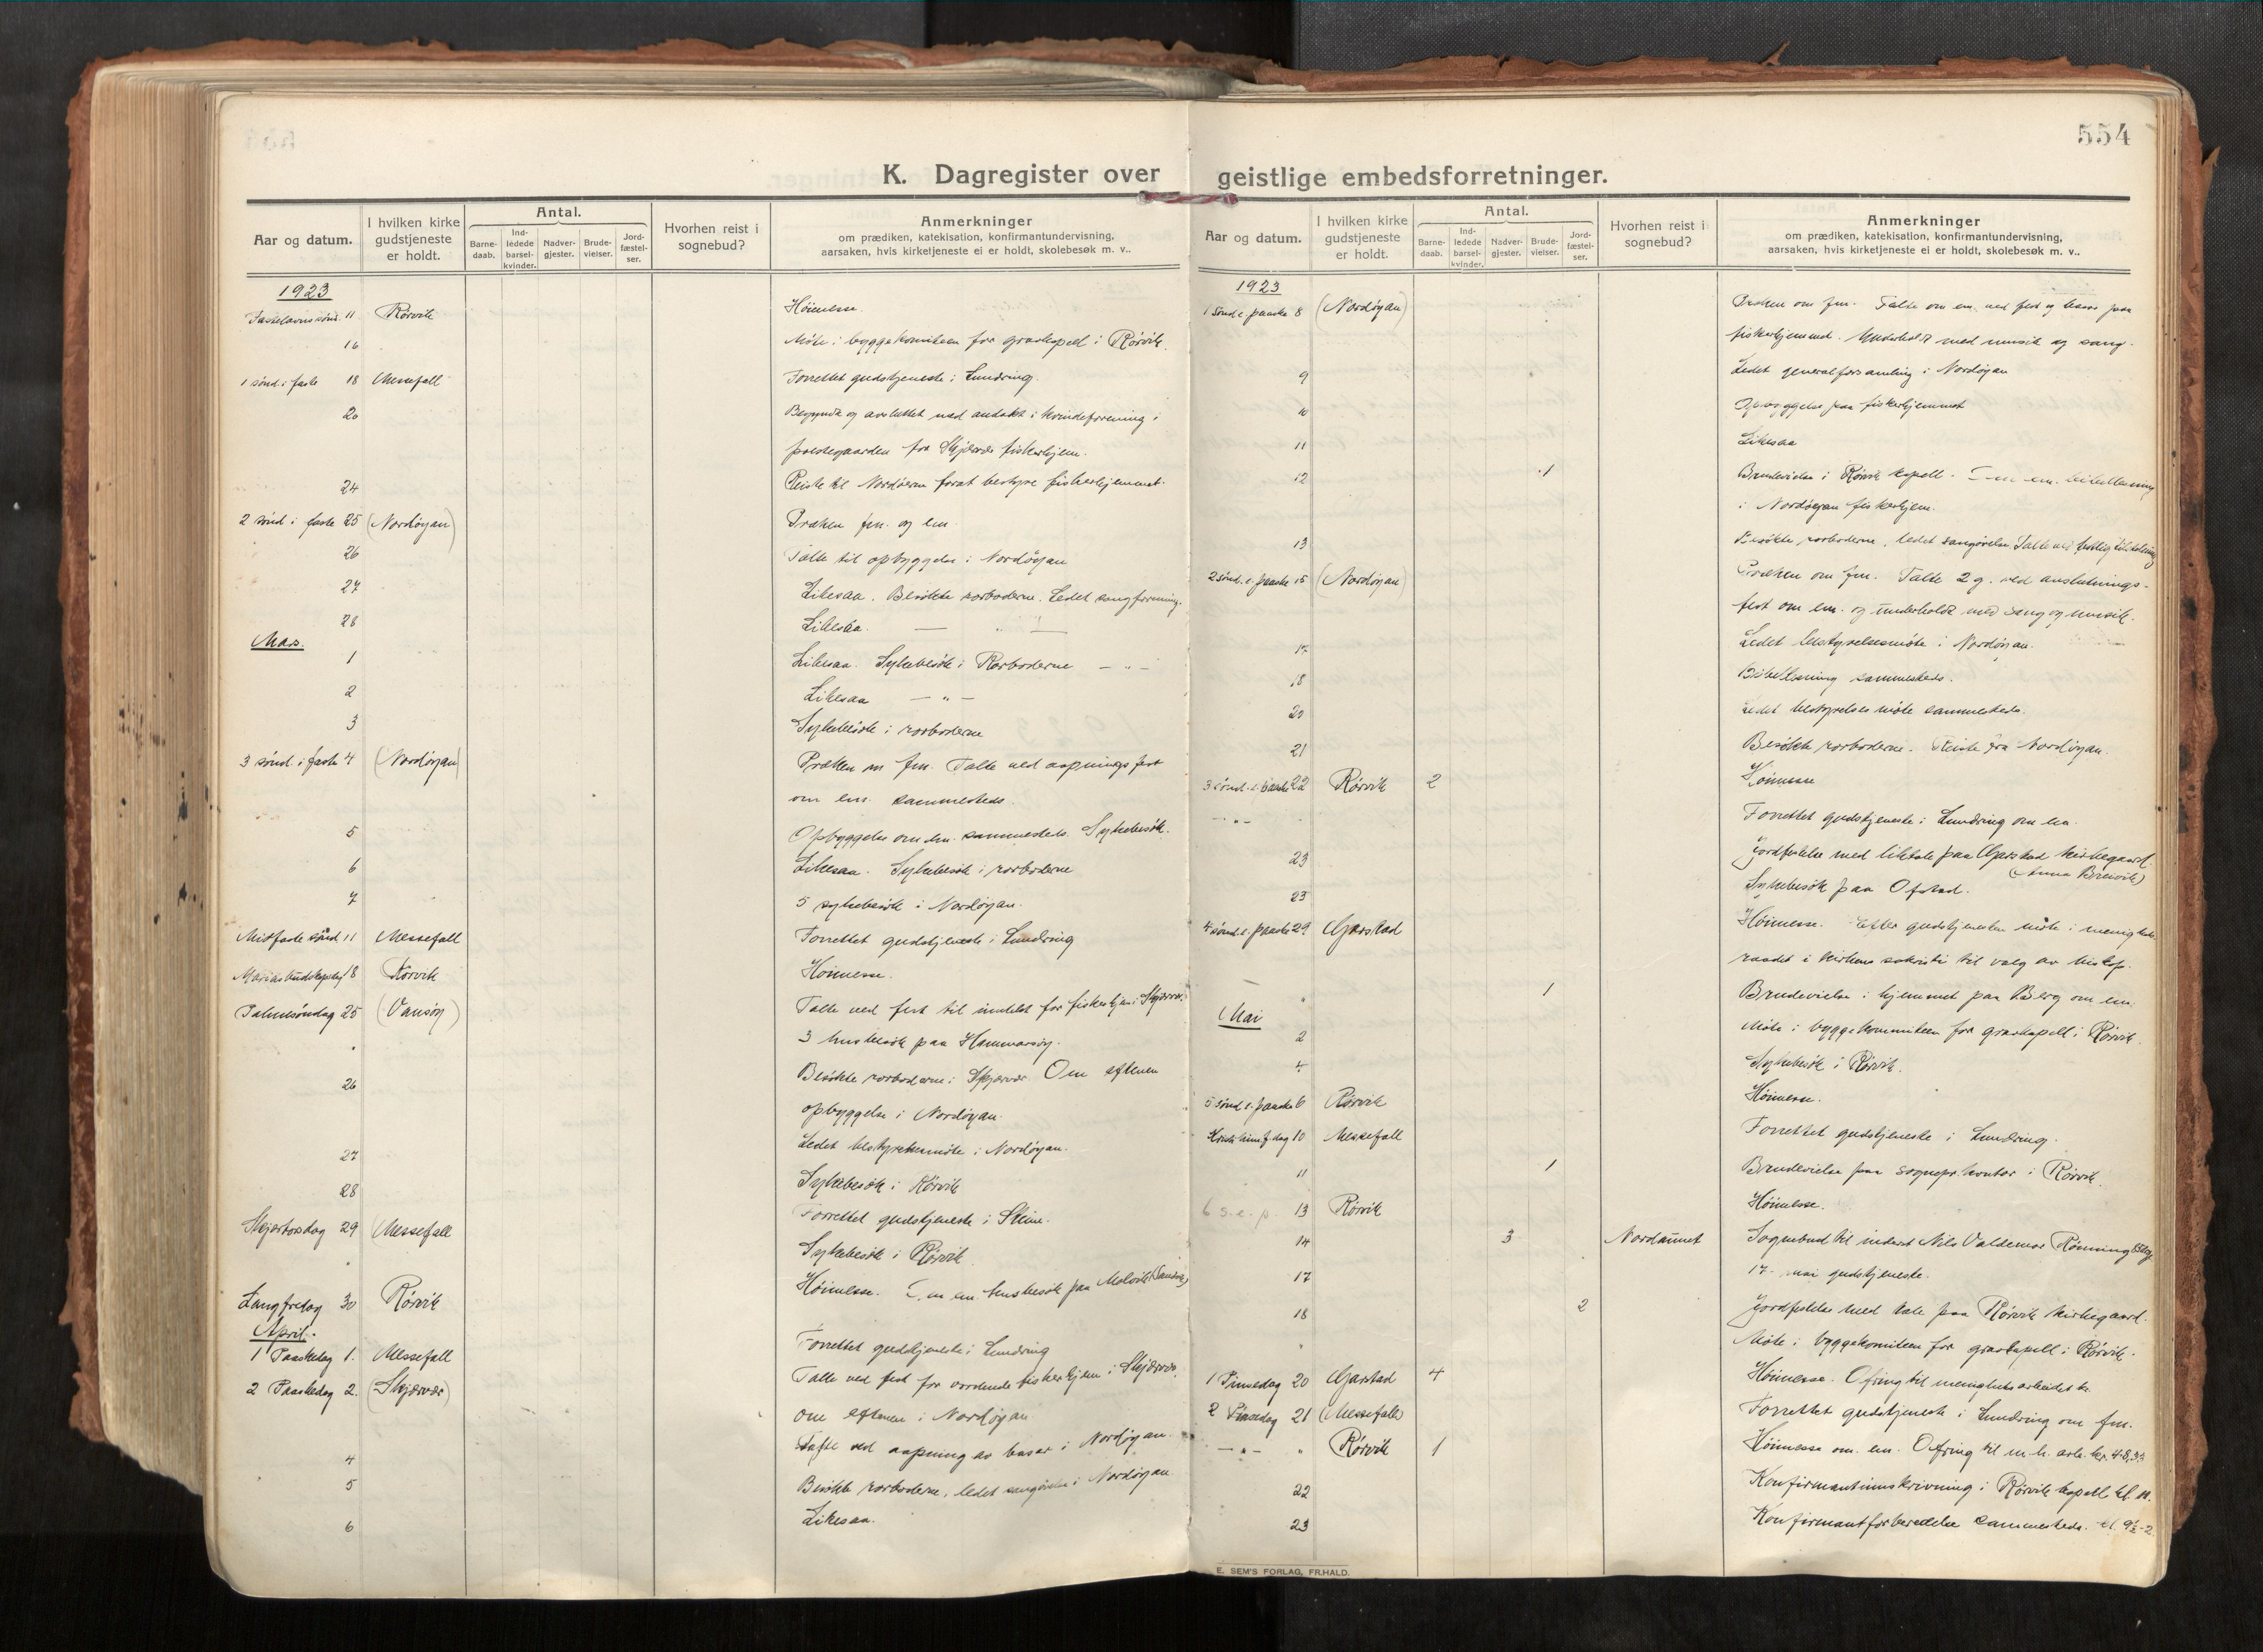 554
K. Dagregister over geistlige embedsforretninger.
Aar og datum.
I hvilken kirke gudstjeneste er holdt.
Antal.
Barne-daab.
Ind-ledede barsel-kvinder.
Nadver-gjester.
Brude-vielser.
Jord-fæstel-ser.
Hvorhen reist i sognebud?
Anmerkninger
om prædiken, katekisation, konfirmantundervisning,
aarsaken, hvis kirketjeneste ei er holdt, skolebesøk m. v..
1923
Fastelavns sønd. 11 Rørvik Høimesse.
16 Møte i byggekomiteen for gravkapell i Rørvik.
1 sønd. i faste 18 Messefall Forrettet gudstjeneste i Lundring.
20 Begyndte og avsluttet med andakt i kvindeforening i
prestegaarden for Skjærvær fiskerhjem.
24 Reiste til Nordøerne forat bestyre fiskerhjemmet.
2 sønd i faste 25 (Nordøyan) Præken fm. og em.
26 Talte til opbyggelse i Nordøyan
27 Likesaa. Besøkte rorboderne. Ledet sangforening.
28 Likesaa. — " —
Mars.
1 Likesaa. Sykebesøk i Rorboderne — " —
2 Likesaa — " —
3 Sykebesøk i rorboderne
3 sønd. i faste 4 (Nordøyan) Præken om fm. Talte ved aapningsfest
om em. sammesteds.
5 Opbyggelse om em. sammesteds. Sykebesøk.
6 Likesaa. Sykebesøk i rorboderne
7 5 sykebesøk i Nordøyan.
Midfaste sønd 11 Messefall Forrettet gudstjeneste i Lundring
Marias budskapsdag 18 Rørvik Høimesse.
Palmesøndag 25 (Vansøy) Talte ved fest til inntekt for fiskerhjem i Skjærvær.
" 3 husbesøk paa Hammarøy.
26 Besøkte rorboderne i Skjærvær. Om eftenen
opbyggelse i Nordøyan.
27 Ledet bestyrelsesmøte i Nordøyan.
28 Sykebesøk i Rørvik
Skjærtorsdag 29 Messefall Forrettet gudstjeneste i Steine.
" Sykebesøk i Rørvik
Langfredag 30 Rørvik Høimesse. Om em husbesøk paa Molvik (Sandvik)
April.
1 Paaskedag 1. Messefall Forrettet gudstjeneste i Lundring
2 Paaskedag 2. (Skjærvær) Talte ved fest for vordende fiskerhjem i Skjærvær.
om eftenen i Nordøyan
4 Talte ved aapning av basar i Nordøyan.
5 Besøkte rorboderne, ledet sangøvelse i Nordøyan
6 Likesaa.
Aar og datum.
I hvilken kirke gudstjeneste er holdt.
Antal.
Barne-daab.
Ind-ledede barsel-kvinder.
Nadver-gjester.
Brude-vielser.
Jord-fæstel-ser.
Hvorhen reist i sognebud?
Anmerkninger
om prædiken, katekisation, konfirmantundervisning,
aarsaken, hvis kirketjeneste ei er holdt, skolebesøk m. v..
1923
1 sønd e. paaske 8 (Nordøyan) Præken om fm. Talte om em. ved fest og basar paa
fiskerhjemmet. Underholdt med musik og sang.
9 Ledet generalforsamling i Nordøyan
10 Opbyggelse paa fiskerhjemmet
11 Likesaa
12 1 Brudevielse i Rørvik kapell. Om em. bibellæsning
i Nordøyan fiskerhjem.
13 Besøkte rorboderne, ledet sangøvelse. Talte ved festlig tilstelning
2 sønd. e. paaske 15 (Nordøyan) Præken om fm. Talte 2 g. ved avslutnings-
fest om em. og underholdt med sang og musik.
17 Ledet bestyrelsesmøte i Nordøyan.
18 Bibellæsning sammesteds.
20 Ledet bestyrelsesmøte sammesteds.
21 Besøkte rorboderne. Reiste fra Nordøyan.
3 sønd. e. paaske 22 Rørvik 2 Høimesse
— " — Forrettet gudstjeneste i Lundring om em.
23 Jordfestelse med liktale paa Garstad kirkegaard.
(Anna Breivik)
23 Sykebesøk paa Ofstad.
4 sønd. e. paaske 29 Garstad Høimesse. Efter gudstjenesten møte i menighets-
raadet i kirkens sakristi til valg av biskop.
— " 1 Brudevielse i hjemmet paa Berg om em.
Mai
2 Møte i byggekommiteen for gravkapell i Rørvik.
4 Sykebesøk i Rørvik.
5 sønd e. paaske 6 Rørvik Høimesse.
Kristi himf. dag 10 Messefall Forrettet gudstjeneste i Lundring.
11 1 Brudevielse paa sognepr. kontor i Rørvik.
6 s. e. p. 13 Rørvik Høimesse.
14 3 Nordaunet Sognebud til inderst Nils Valdemar Rønning
17 17. mai gudstjeneste.
18 2 Jordfestelse med tale paa Rørvik kirkegaard.
" Møte i byggekomiteen for gravkapell i Rørvik.
1 Pinsedag 20 Garstad 4 Høimesse. Ofring til menighetsarbeidet kr.
2 Pinsedag 21 (Messefall) Forrettet gudstjeneste i Lundring om fm.
— " — " Rørvik 1 Høimesse om em. Ofring til m.h. arb. kr. 48,33
22 Konfirmantinnskrivning i Rørvik kapell kl. 11.
23 Konfirmantforberedelse sammesteds. kl. 9½-2
E. SEM'S FORLAG, FR.HALD.